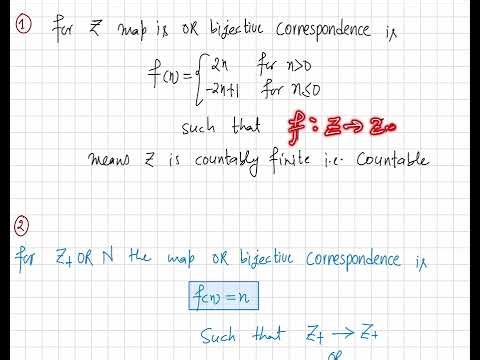 ① for Z map is OR bijective Correspondence is
f(n) = { 2n for n>0
-2n+1 for n≤0
such that f : Z → Z₊
means Z is countably finite i.e. Countable
②
for Z₊ OR N the map OR bijective Correspondence is
f(n) = n
Such that Z₊ → Z₊
OR